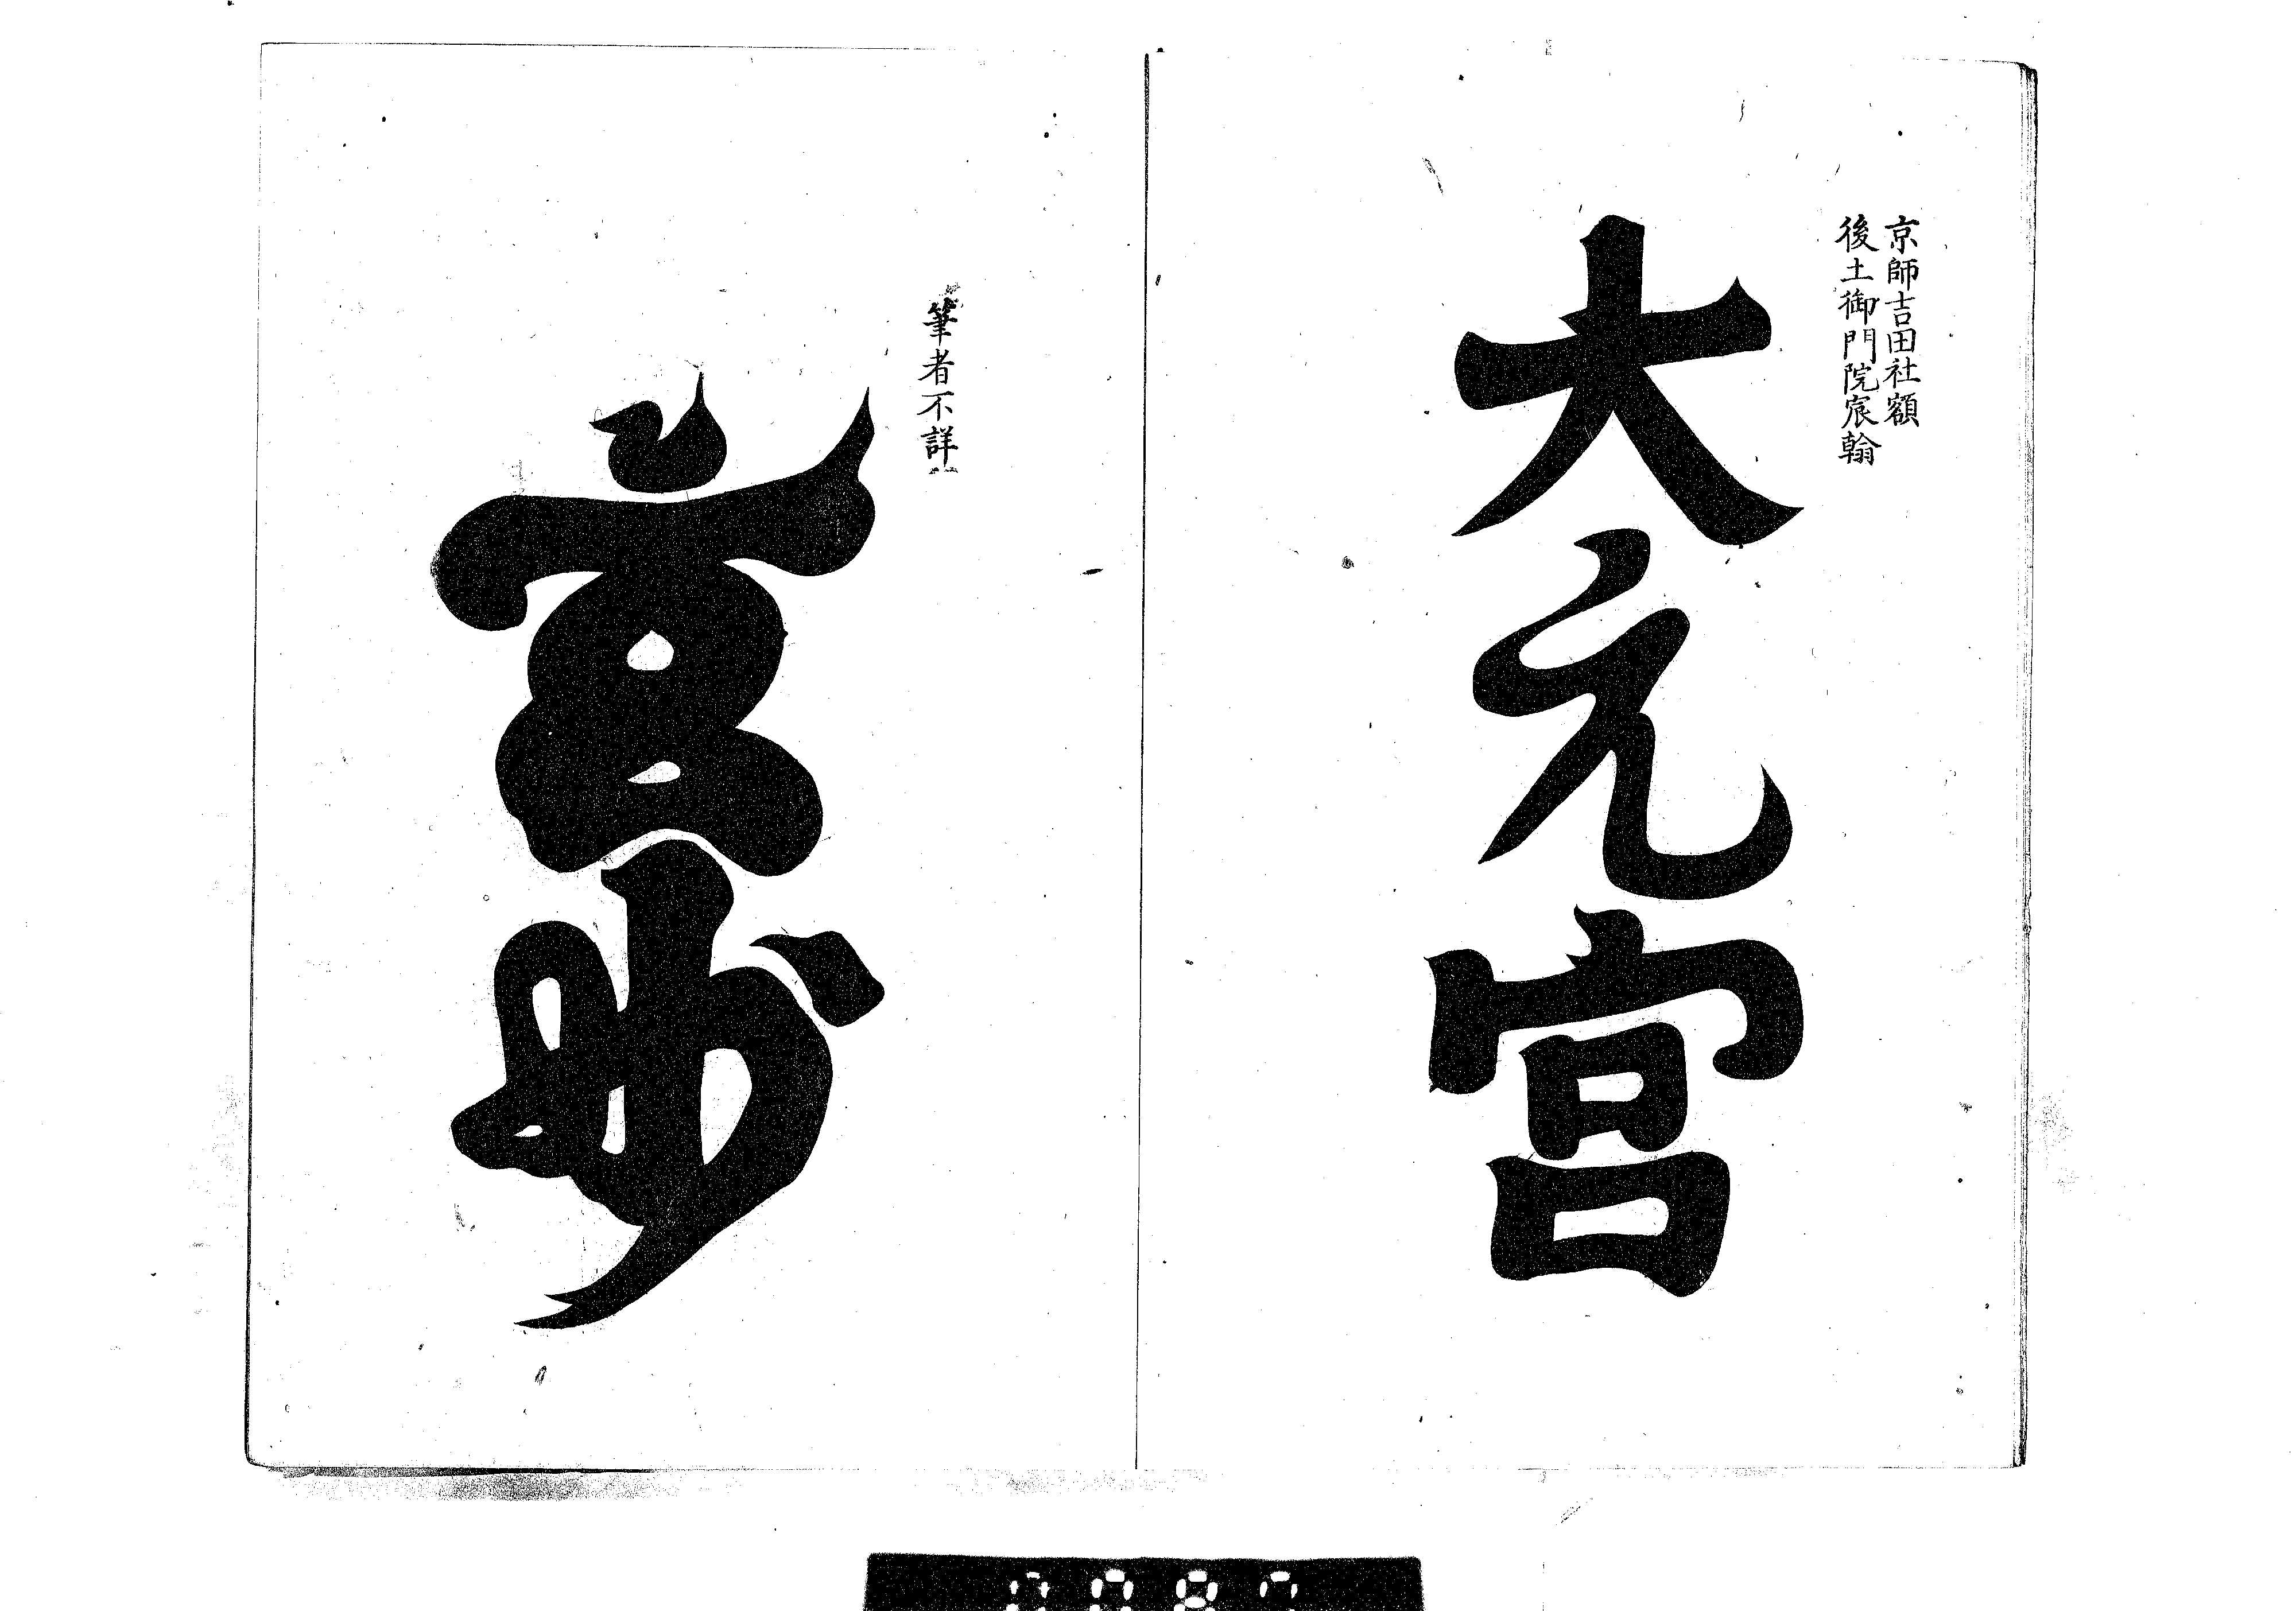 京師吉田社額
後土御門院宸翰
大元宮
筆者不詳
玄妙